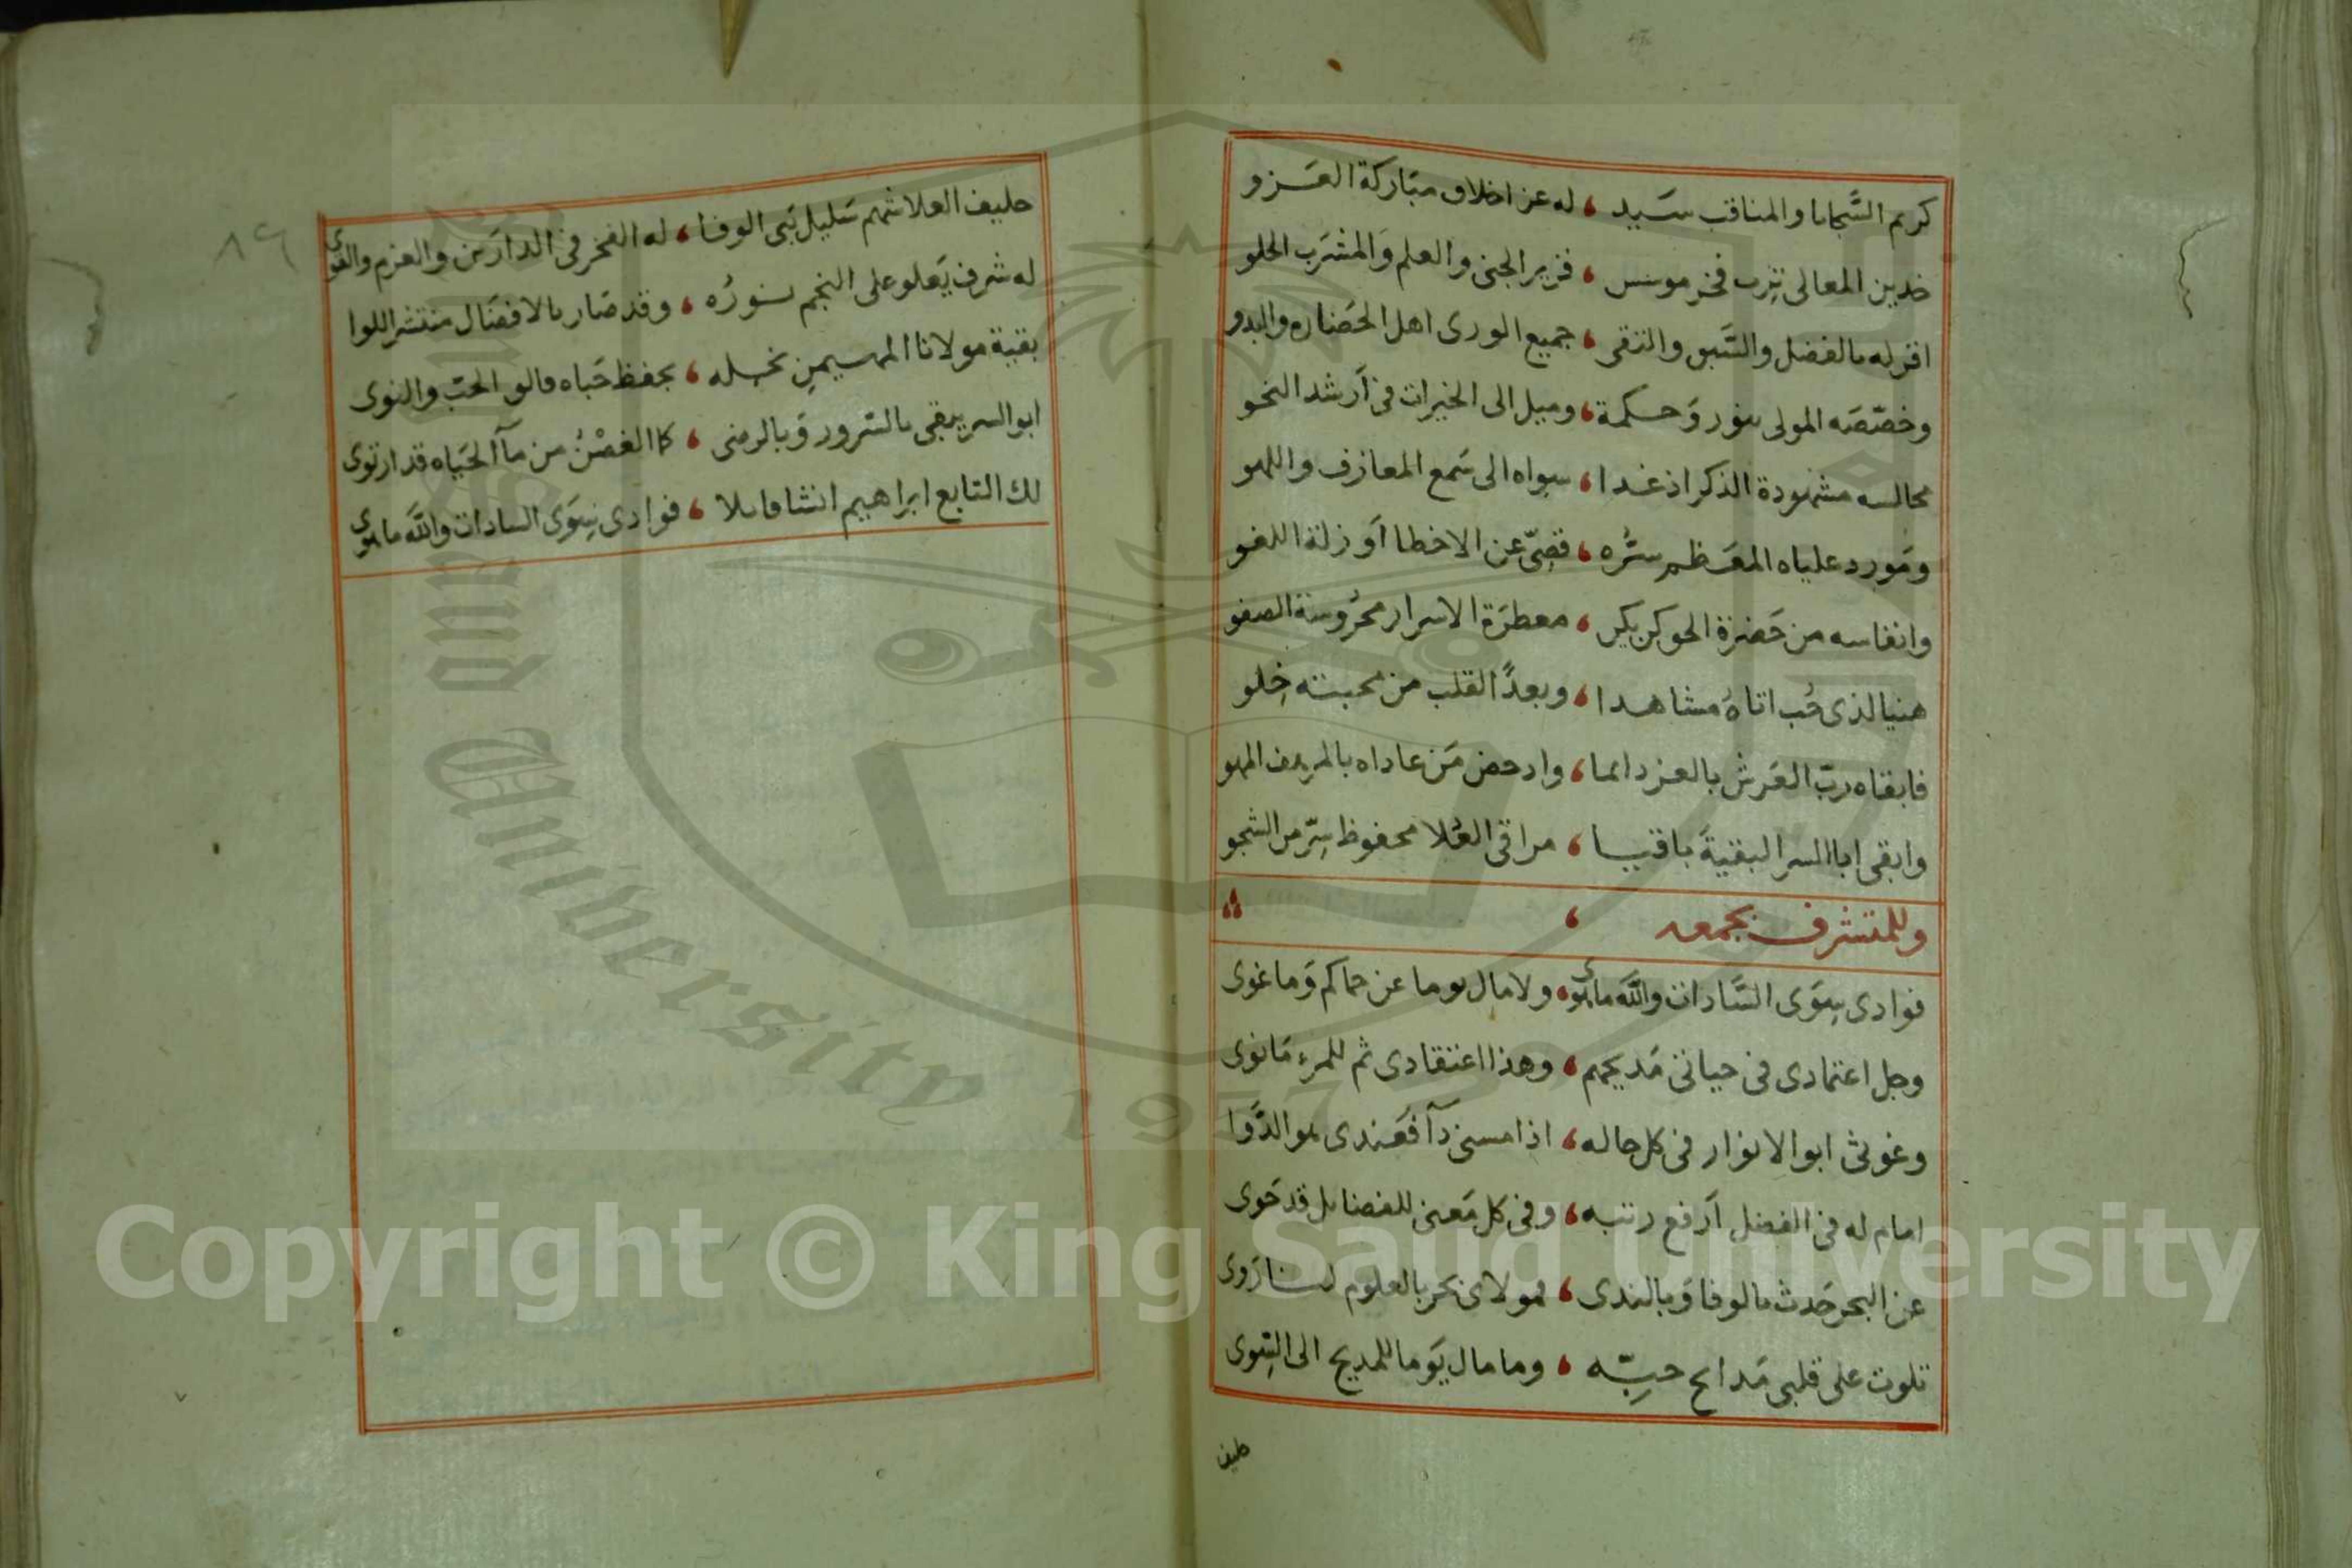 كريم السَّجايا والمناقب سَيد ، له عز اخلاق مبَاركة العَزو
خدين المعالى تِرب فخر موسس ، غزير الجنى والعلم وَالمشرَب الحلو
اقر له بالفضل والسَّبق والتقى ، جميع الورى اهل الحَضاره والبدو
وخصّصَه المولى بنور وَحكمة ، وميل الى الخيرات فى اَرشد النحو
مجالسه مشهودة الذكر اذ غدا ، سواه الى سَمع المعازف واللهو
ومَورد علياه المعَظم سرُّه ، قصِىّ عن الاخطا اَو زلة اللغو
وانفاسه من حَضرَة الحق معطرَة الاسرار محرُوسة الصفو
هنيا لذى حُب اتاهُ مشاهدا ، وبعدًا لقلب من محبته خِلو
فابقاه ربّ العَرش بالعز دائما ، وادحض مَن عاداه بالمرهف المهو
وابقى ابا السر البقيةَ باقيا ، مراقى العُلا محفوظ سِرّ من الشجو
وللمتشرف بجمعه ،
فوادى سِوَى السَّادات والله ما هوى ، ولا مال يوما عن حماكم وَما غوى
وجل اعتمادى فى حياتى مَديحهم ، وهذا اعتقادى ثم للمرءِ مَا نوى
وغوثى ابو الانوار فى كل حاله ، اذا مسنى دآ فعَندى هو الدَّوَا
امام له فى الفضل اَرفع رتبه ، وفى كل مَعنى للفضائل قد حَوى
عن البحر حَدث بالوفا وَبالندى ، فمولاى بحر بالعلوم لنا رَوى
تلوت على قلبى مَدايح حبِّه ، وما مال يَوما للمديح الى السِّوى
حليف
حليف العلا شهم سَليل بَنى الوفا ، له الفخر فى الدارَين والعزم والقوى
له شرف يَعلو على النجم نورُه ، وقد صَار بالافضَال منتشر اللوا
بقية مولانا المهيمنِ نجله ، بحفظ حَباه فالق الحَبّ والنوى
ابو السر يبقى بالسّرور وَبالرضى ، كما الغصْنُ من مآ الحَيَاه قد ارتوى
لك التابع ابراهيم انشا قايلا ، فوادى سِوَى السادات والله ما هوى
٨٩
Copyright © King Saud University
King Saud University
1957